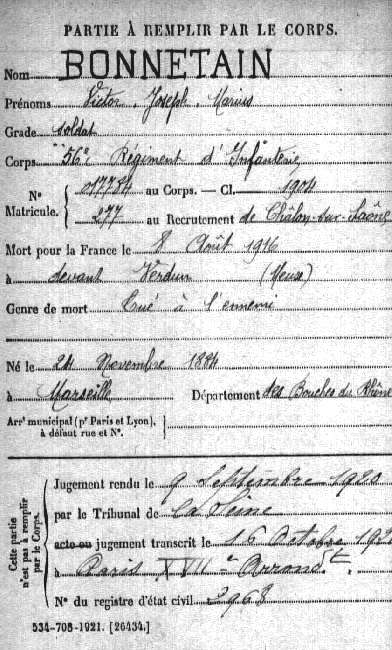 PARTIE À REMPLIR PAR LE CORPS.
Nom BONNETAIN
Prénoms Victor, Joseph, Marius
Grade soldat
Corps 56e Régiment d'Infanterie
N° Matricule. 017784 au Corps. — Cl. 1904
277 au Recrutement de Châlon-sur-Saône
Mort pour la France le 8 Août 1916
à devant Verdun (Meuse)
Genre de mort Tué à l'ennemi
Né le 24 Novembre 1884
à Marseille Département des Bouches du Rhône
Arr^t municipal (p^r Paris et Lyon), à défaut rue et N°.
Cette partie n'est pas à remplir par le Corps.
Jugement rendu le 9 Septembre
par le Tribunal de La Seine
acte ou jugement transcrit le 16 Octobre
à Paris XVII e Arrond^t.
N° du registre d'état civil 2968
534-708-1921. [26434.]